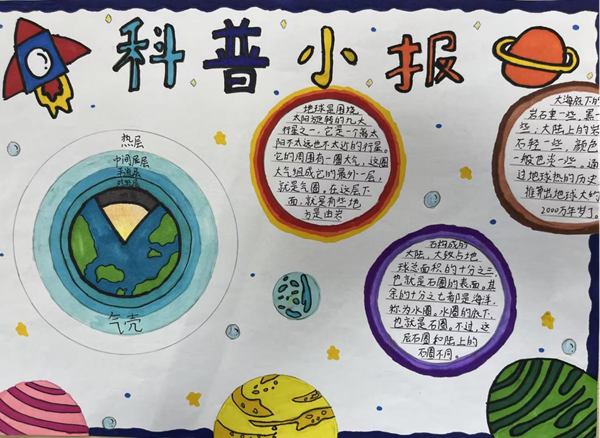 科普小报
热层
中间层层
气壳
地球是围绕
太阳旋转的九大
行星之一,它是一个离太
阳不太远也不太近的行星。
它的周围有一圈大气,这圈
大气组成它的最外一层,
就是气圈,在这层下
面,就是有些地
方是由岩
石构成的
大陆,大致占地
球总面积的十分之三,
也就是石圈的表面。其
余的十分之七都是海洋,
称为水圈。水圈的底下,
也就是石圈。不过,这
层石圈和陆上的
石圈不同。
大海底下的
岩石重一些,黑一
些,大陆上的岩
石轻一些,颜色
一般也淡一些。通
过地球热的历史
推算出地球大约
2000万年岁了。